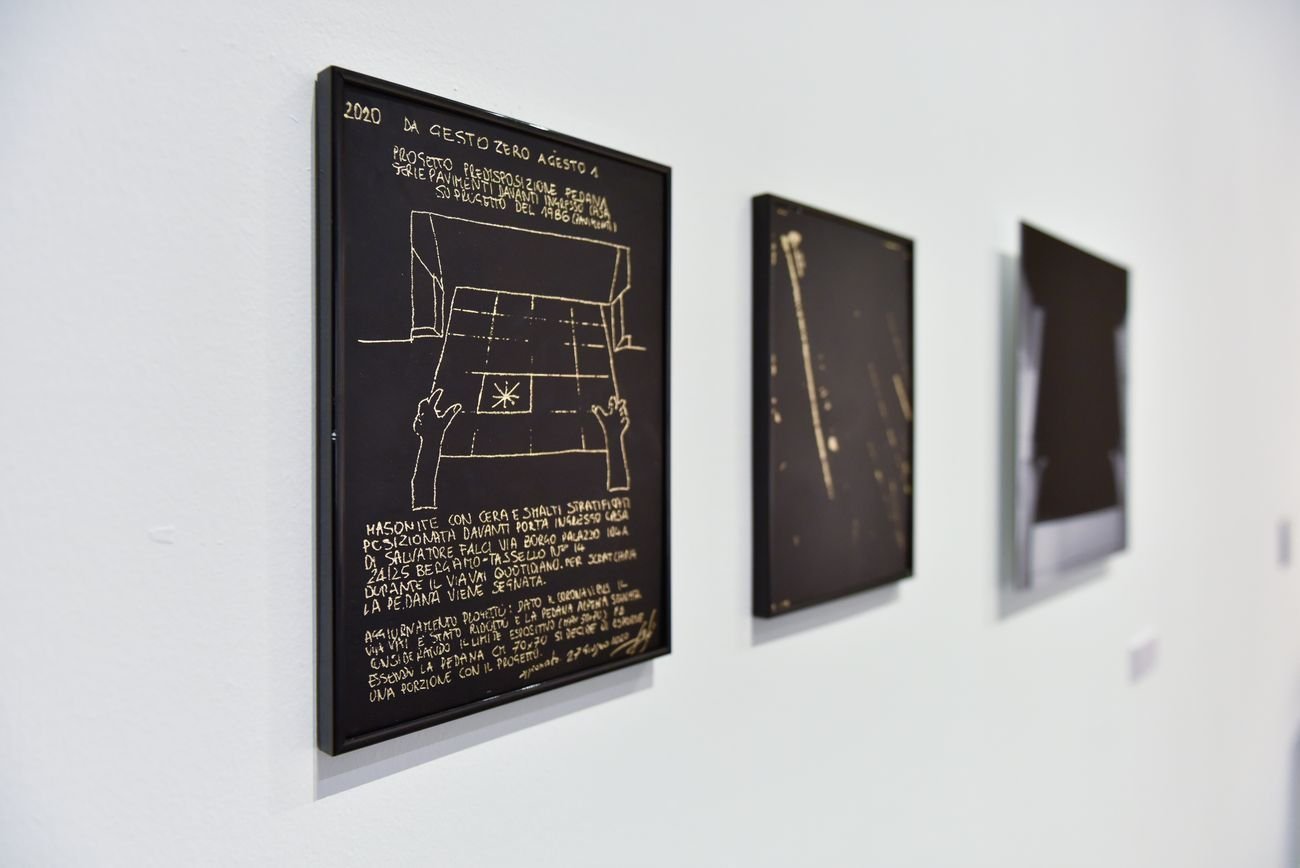 2020 DA GESTO ZERO A GESTO 1
PROGETTO PREDISPOSIZIONE PEDANA
SERIE PAVIMENTI DAVANTI INGRESSO CASA
SU PROGETTO DEL 1986 (PAVIMENTI)
MASONITE CON CERA E SMALTI STRATIFICATI
POSIZIONATA DAVANTI PORTA INGRESSO CASA
DI SALVATORE FALCI VIA BORGO PALAZZO 104A
24125 BERGAMO-TASSELLO N° 14
DURANTE IL VIA VAI QUOTIDIANO. PER SCOTCHARIA
LA PEDANA VIENE SEGNATA.
AGGIORNAMENTO PROGETTO: DATO IL CORONAVIRUS IL
VIA VAI E STATO RIDOTTO E LA PEDANA APPENA SEGNATA
CONSIDERANDO IL LIMITE ESPOSITIVO
ESSENDO LA PEDANA CM 70x70 SI DECIDE DI ESPORRE
UNA PORZIONE CON IL PROGETTO.
27 Giugno 2020